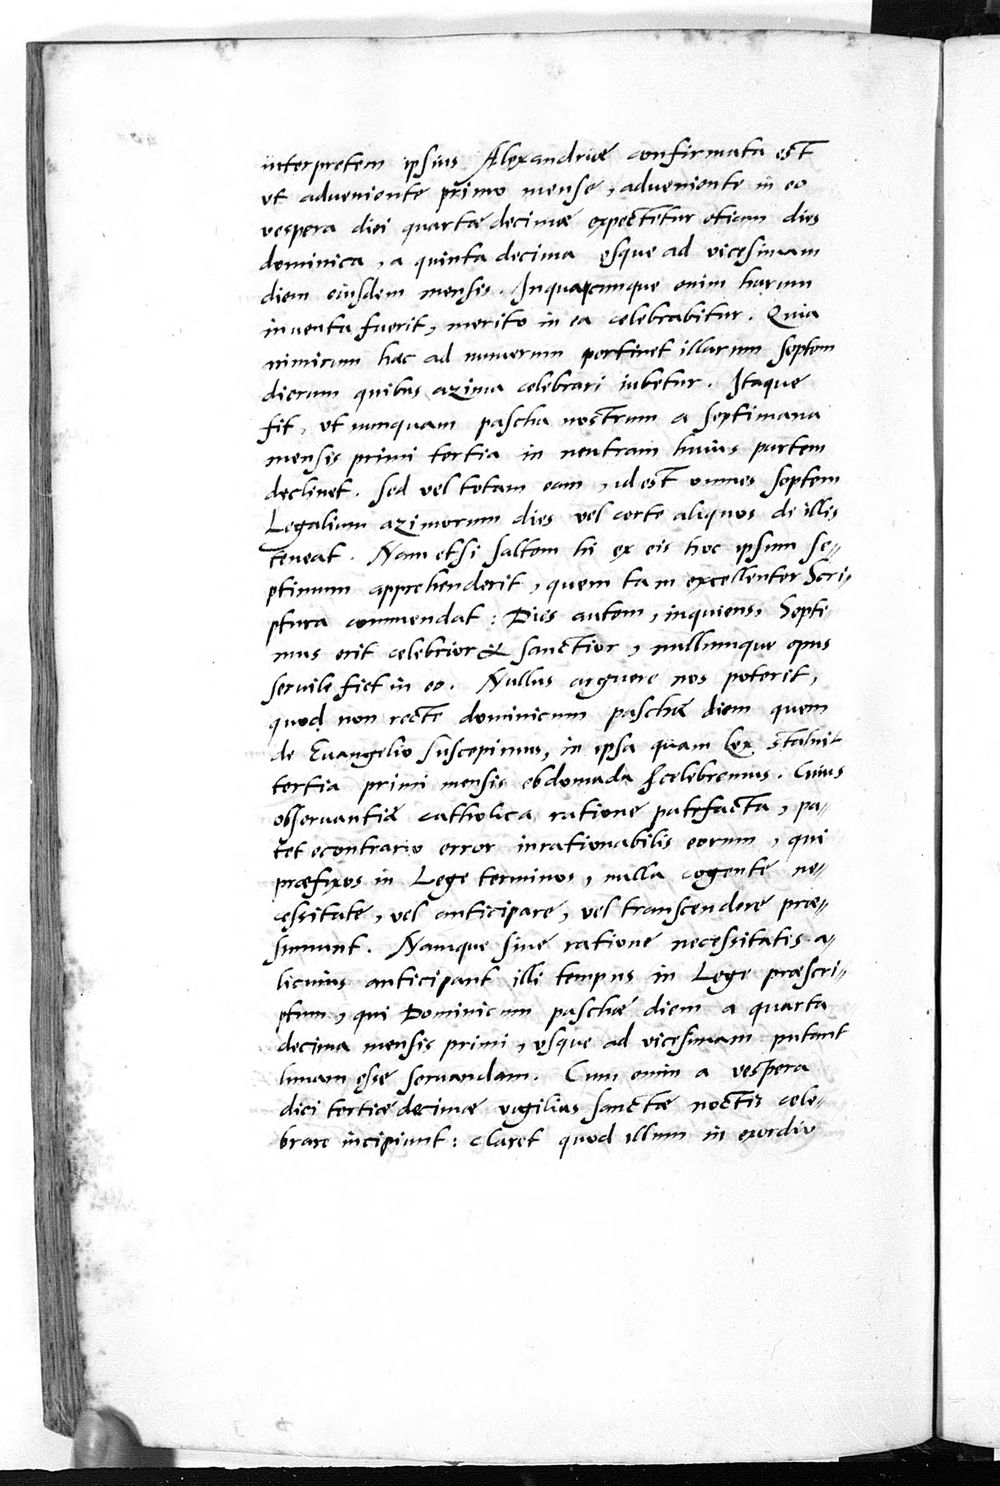 interpretem ipsius Alexandriæ confirmata est
ut adveniente primo mense, adveniente in eo
vespera diei quartædecimæ expectetur etiam dies
dominica, a quinta decima usque ad vicesimam
diem eiusdem mensis. Inquacunque enim harum
inventa fuerit, merito in ea celebrabitur. Quia
nimirum hæc ad numerum pertinet illarum septem
dierum quibus azima celebrari iubetur. Itaque
fit, ut nunquam pascha nostrum a septimana
mensis primi tertia in neutram huius partem
declinet. Sed vel totam eam, id est omnes septem
Legalium azimorum dies vel certe aliquos de illis
teneat. Nam etsi saltem hi ex eis hoc ipsum se//
ptimum apprehenderit, quem tam excellenter Scri//
ptura commendat: Dies autem, inquiens, Septi-
mus erit celebrior & sanctior, nullumque opus
servile fiet in eo. Nullus arguere nos poterit,
quod non recte dominicum paschæ diem quem
de Euangelio suscepimus, in ipsa quam Lex statuit
tertia primi mensis ebdomada celebremus. Cuius
observantiæ catholica ratione patefacta, pa//
tet econtrario error inrationabilis eorum, qui
præfixos in Lege terminos, nulla cogente ne//
cessitate, vel anticipare, vel transcendere præ//
sumunt. Namque sine ratione necessitatis a//
licuius anticipant illi tempus in Lege præscri//
ptum, qui Dominicum paschæ diem a quarta
decima mensis primi, usque ad vicesimam putant
lunam esse servandam. Cum enim a vespera
diei tertiædecimæ vigilias sanctæ noctis cele//
brare incipiunt: claret quod illum in exordio